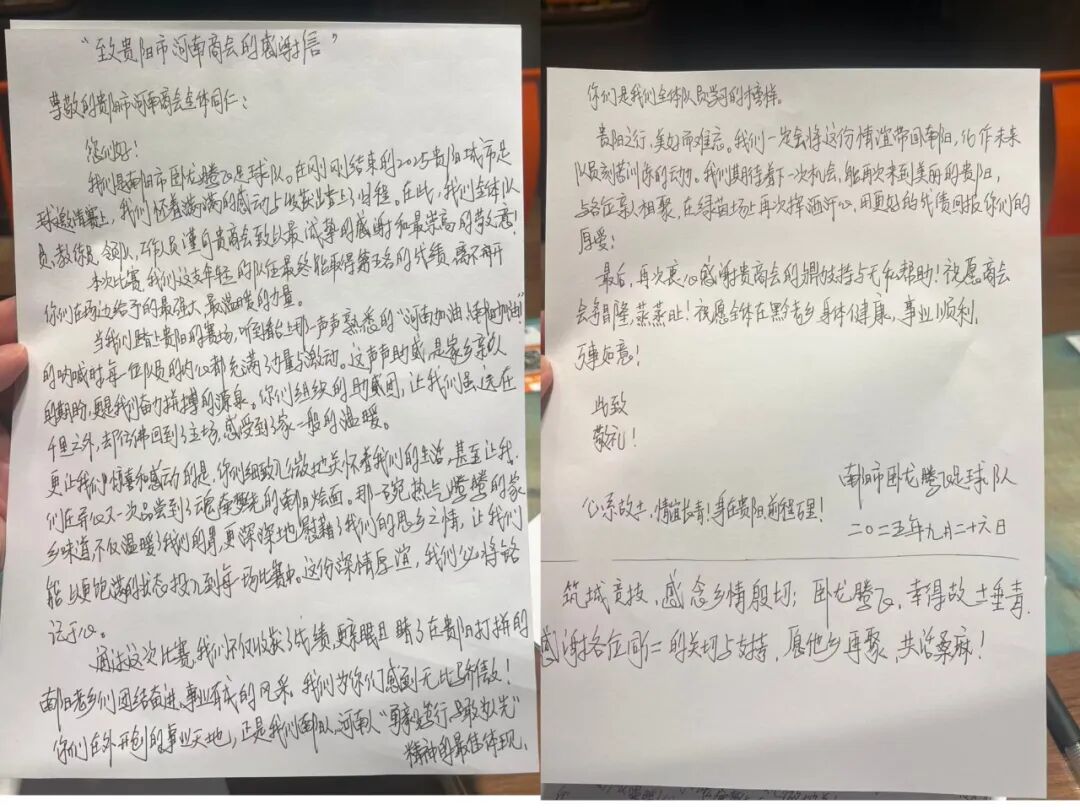 “致贵阳市河南商会的感谢信”
尊敬的贵阳市河南商会全体同仁:
您们好!
我们是南阳市卧龙腾飞足球队。在刚刚结束的2025贵阳城市足
球邀请赛上,我们怀着满满的感动与收获踏上归程。在此,我们全体队
员、教练员、领队、工作人员谨向贵商会致以最诚挚的感谢和最崇高的敬意!
本次比赛,我们这支年轻的队伍最终能取得第五名的成绩,离不开
你们在场边给予的最强大、最温暖的力量。
当我们踏上贵阳的赛场,听到看台上那一声声熟悉的“河南加油”
的呐喊时,每一位队员的内心都充满了力量与激动。这声声助威,是家乡亲人
的期盼,更是我们奋力拼搏的源泉。你们组织的助威团,让我们虽远在
千里之外,却仿佛回到了主场,感受到了家一般的温暖。
更让我们惊喜和感动的是,你们细致入微地关怀着我们的生活,甚至让我
们在异乡又一次品尝到了魂牵梦绕的南阳烩面。那一碗热气腾腾的家
乡味道,不仅温暖了我们的胃,更深深地慰藉了我们的思乡之情,让我们
能以更饱满的状态投入到每一场比赛中。这份深情厚谊,我们必将铭
记于心。
通过这次比赛,我们不仅收获了成绩,更亲眼目睹了在贵阳打拼的
南阳老乡们团结奋进、事业有成的风采。我们为你们感到无比骄傲!
你们在外开创的事业天地,正是我们南阳人、河南人“勇毅笃行、敢为人先”
精神的最佳体现,
你们是我们全体队员学习的榜样。
贵阳之行,美好而难忘。我们一定会将这份情谊带回南阳,化作未来
队员刻苦训练的动力。我们期待着下一次机会,能再次来到美丽的贵阳,
与各位亲人相聚,在绿茵场上再次挥洒汗水,用更好的成绩回报你们的
厚爱!
最后,再次衷心感谢贵商会的鼎力支持与无私帮助!祝愿商会
会务昌隆,蒸蒸日上!祝愿全体在黔老乡身体健康,事业顺利,
万事如意!
此致
敬礼!
南阳市卧龙腾飞足球队
心系故土,情谊长青!身在贵阳,前程万里!
二〇二五年九月二十六日
筑城竞技,感念乡情殷切;卧龙腾飞,幸得故土垂青.
感谢各位同仁的关切与支持,愿他乡再聚,共话桑麻!